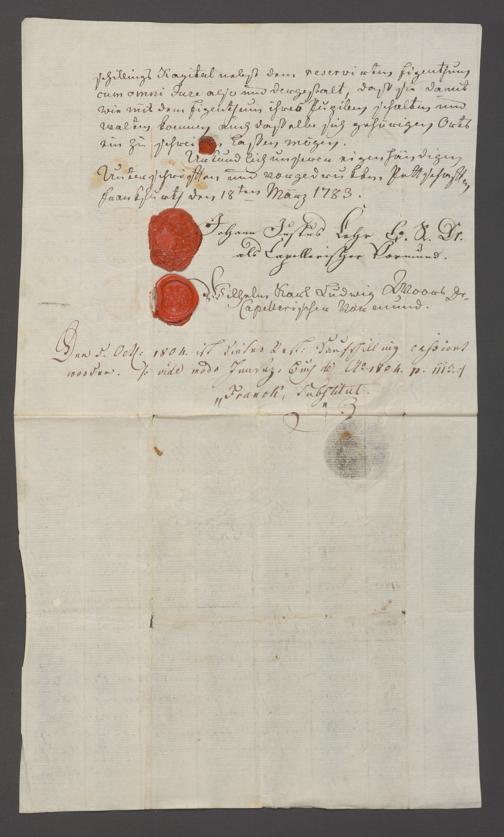 schillings Kapital nebst dem reservirten Eigenthum
cum omni Jure also und dergestalt, daß sie damit
wie mit dem Eigenthum ihres Pupillen schalten und
walten können auch dasselbe sich gehörigen Orts
ein zu schreiben lassen mögen.
Urkundlich unserer eigenhändigen
Unterschriften und vorgedruckten Pettschaften
Frankfurt den 18ten März 1783.
Johann Justus Lehr Dr.
als Capellerischer Vormund.
Wilhelm Karl Ludwig Moors Dr.
Capellerischer Vormund.
Den 5. Octb: 1804. ist dieser Kaufschilling cessirt
worden. vide Buch de Ao. 1804. p. 1113.
Franck, Substitut.